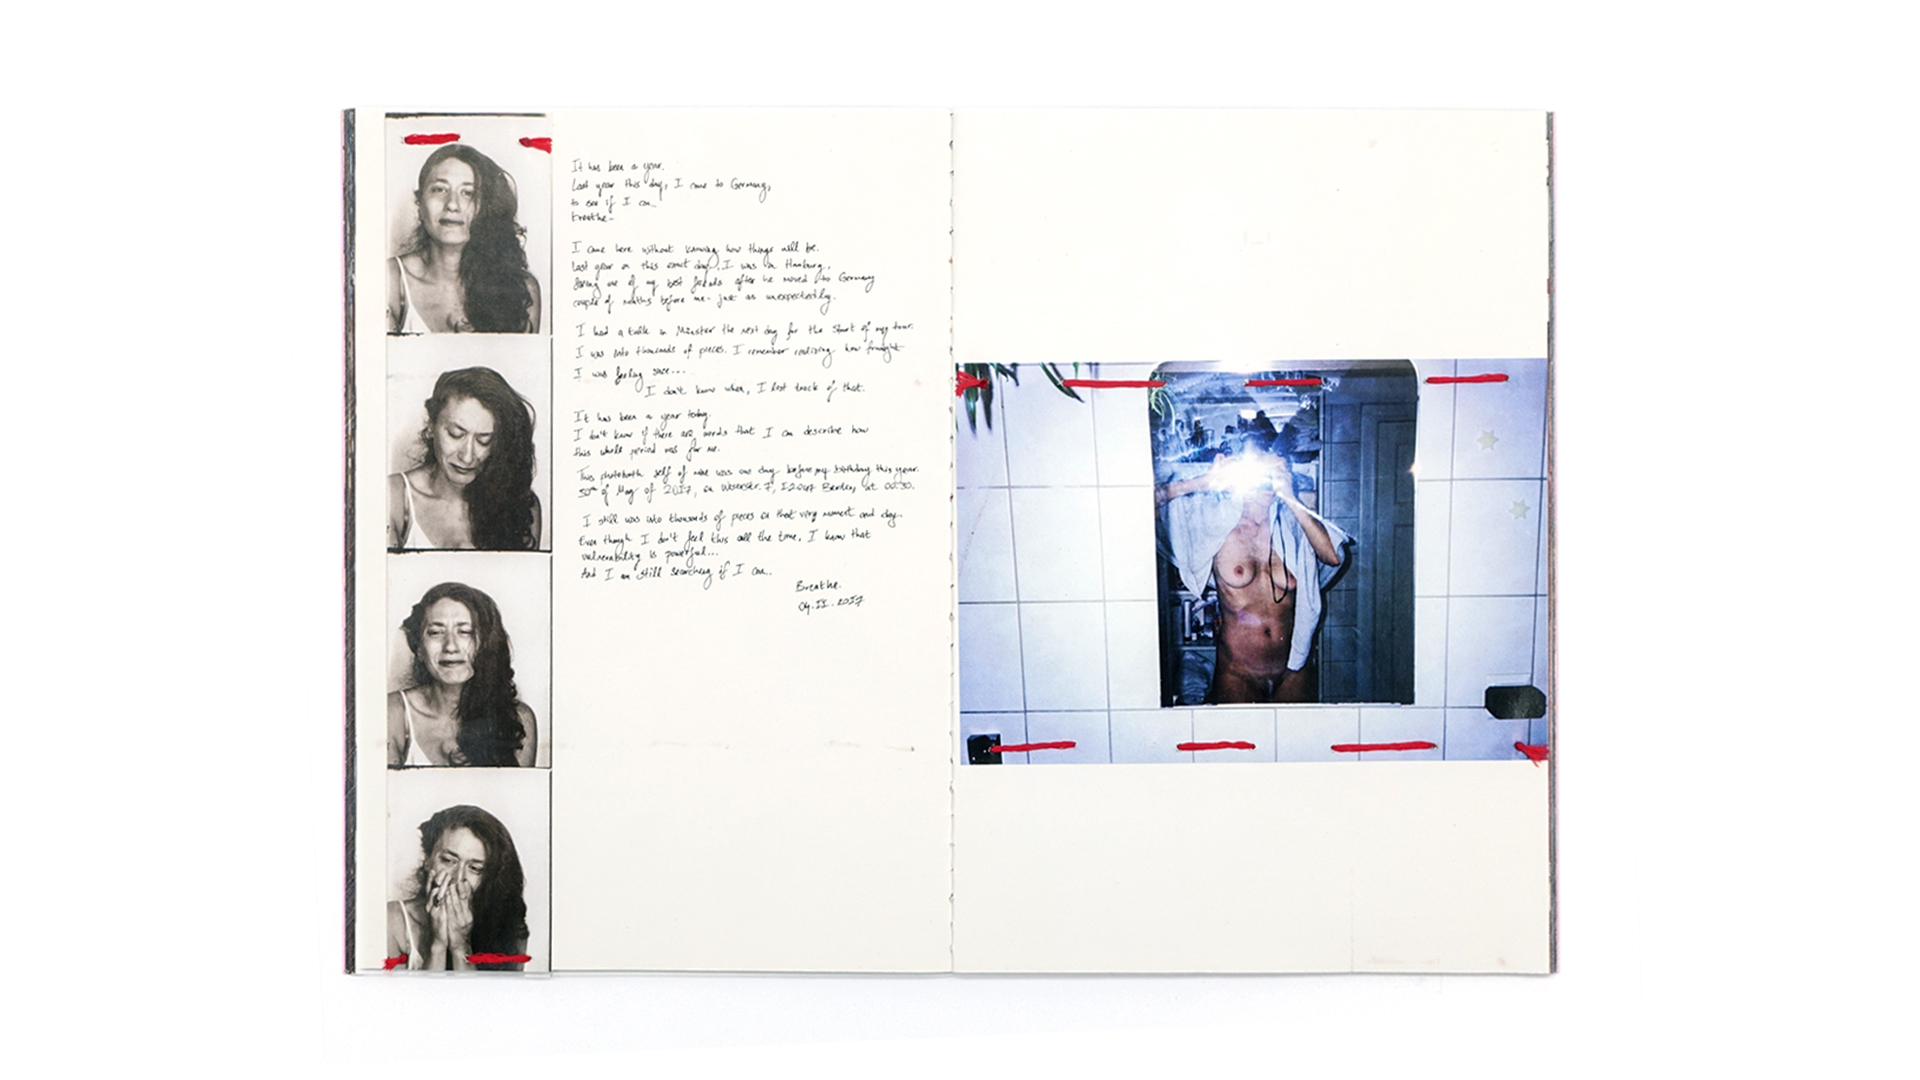 It has been a year.
Last year this day, I came to Germany,
to see if I can..
breathe-
I came here without knowing how things will be.
Last year on this exact day, I was in Hamburg,
seeing one of my best friends after he moved to Germany
couple of months before me- just as unexpectedly.
I had a talk in Münster the next day for the start of my tour.
I was into thousands of pieces. I remember realizing how
I was feeling since...
I don't know when, I lost track of that.
It has been a year today.
I don't know if there are words that I can describe how
this whole period was for me.
This photobooth self of mine was one day before my birthday this year.
30th of May of 2017, on Weserstr. 7, 12047 Berlin, at 00:30.
I still was into thousands of pieces on that very moment and day.
Even though I don't feel this all the time, I know that
vulnerability is powerful...
And I am still searching if I can..
Breathe.
04.11.2017